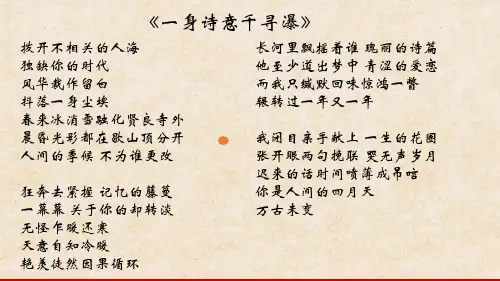 《一身诗意千寻瀑》
拨开不相关的人海
独缺你的时代
风华裁作留白
抖落一身尘埃
春来冰消雪融化 贤良寺外
晨昏光彩都在歇山顶分开
人间的季候 不为谁更改
狂奔去紧握 记忆的藤蔓
一幕幕 关于你的却转淡
无怪乍暖还寒
天意自知冷暖
艳羡徒然因果循环
长河里飘摇着谁 瑰丽的诗篇
他至少道出梦中 青涩的爱恋
而我只缄默回味惊鸿一瞥
辗转过一年又一年
我闭目亲手献上 一生的花圈
张开眼两句挽联 哭无声岁月
迟来的话时间喷薄成吊唁
你是人间的四月天
万古未变